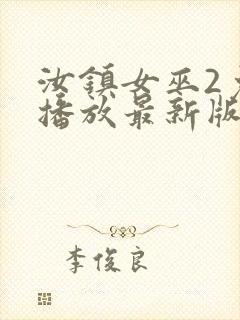 汝鎮女巫2
播放最新版
李俊良